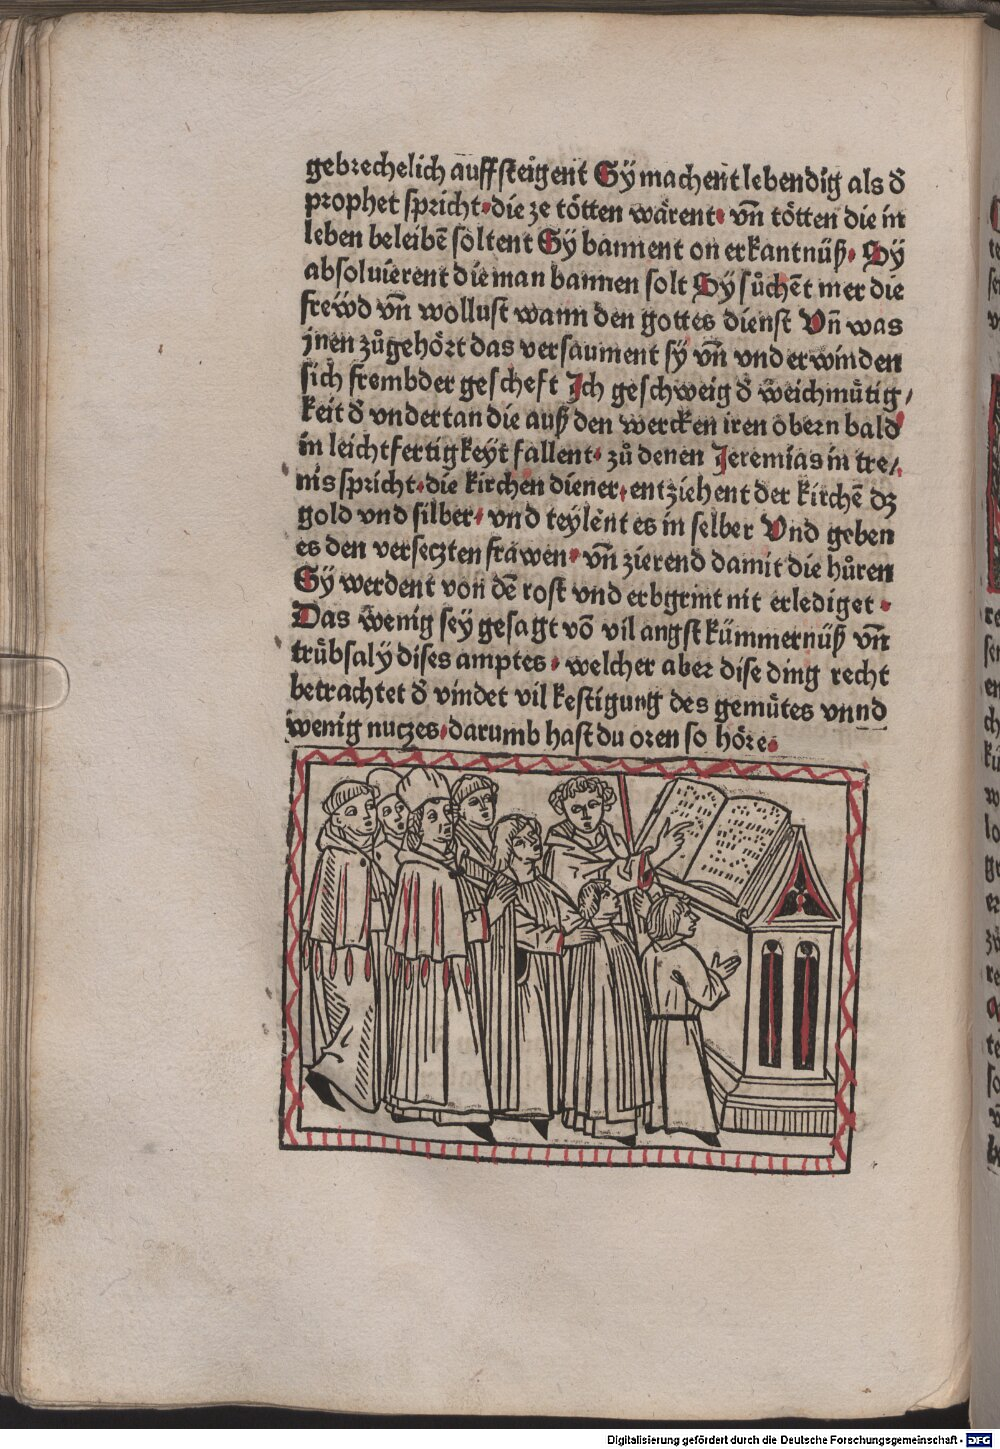 gebrechelich auffsteigent Sy machent lebendig als d̕
prophet spricht·die ze tötten wärent· vn̄ tötten die in
leben beleibē soltent Sy bannent on erkantnüß· Sy
absoluierent die man bannen solt Sy sůchēt mer die
frewd vn̄ wollust wann den gottes dienst Vn̄ was
jnen zůgehört das versaument sy vn̄ vnderwinden
sich frembder gescheft Ich geschweig d̕ weichmůtig/
keit d̕ vndertan die auß den wercken iren obern bald
in leichtfertigkeyt fallent· zů denen Jeremias in tre/
nis spricht·die kirchen diener·entziehent der kirchē dz
gold vnd silber· vnd teylent es in selber Vnd geben
es den verseczten frawen· vn̄ zierend damit die hůren
Sy werdent von dē rost vnd erbgrint nit erlediget·
Das wenig sey gesagt vō vil angst kümmernüß vn̄
trůbsaly dises amptes· welcher aber dise ding recht
betrachtet d̕ vindet vil kestigung des gemůtes vnnd
wenig nuczes·darumb hast du oren so höre·
Digitalisierung gefördert durch die Deutsche Forschungsgemeinschaft - DFG